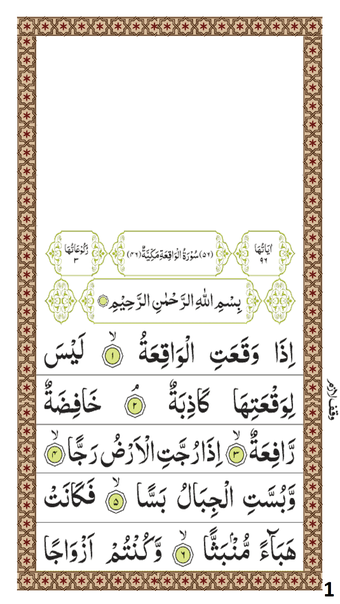 اٰیَاتُهَا ٩٦
(٥٦) سُوْرَةُ الْوَاقِعَةِ مَكِّيَّةٌ (٤٦)
رُكُوْعَاتُهَا ٣
بِسْمِ اللهِ الرَّحْمٰنِ الرَّحِيْمِ
اِذَا وَقَعَتِ الْوَاقِعَةُ ۙ ١ لَيْسَ
لِوَقْعَتِهَا كَاذِبَةٌ ۘ ٢ خَافِضَةٌ
رَّافِعَةٌ ۙ ٣ اِذَا رُجَّتِ الْاَرْضُ رَجًّا ۙ ٤
وَّبُسَّتِ الْجِبَالُ بَسًّا ۙ ٥ فَكَانَتْ
هَبَآءً مُّنْۢبَثًّا ۙ ٦ وَّكُنْتُمْ اَزْوَاجًا
وقف لازم
1